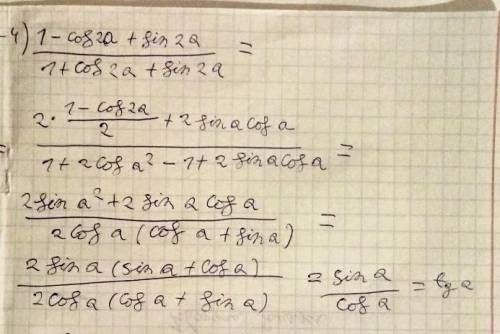 4) (1 - cos 2a + sin 2a) / (1 + cos 2a + sin 2a) =
= (2 · (1 - cos 2a) / 2 + 2 sin a cos a) / (1 + 2 cos a² - 1 + 2 sin a cos a) =
(2 sin a² + 2 sin a cos a) / (2 cos a (cos a + sin a)) =
(2 sin a (sin a + cos a)) / (2 cos a (cos a + sin a)) = sin a / cos a = tg a